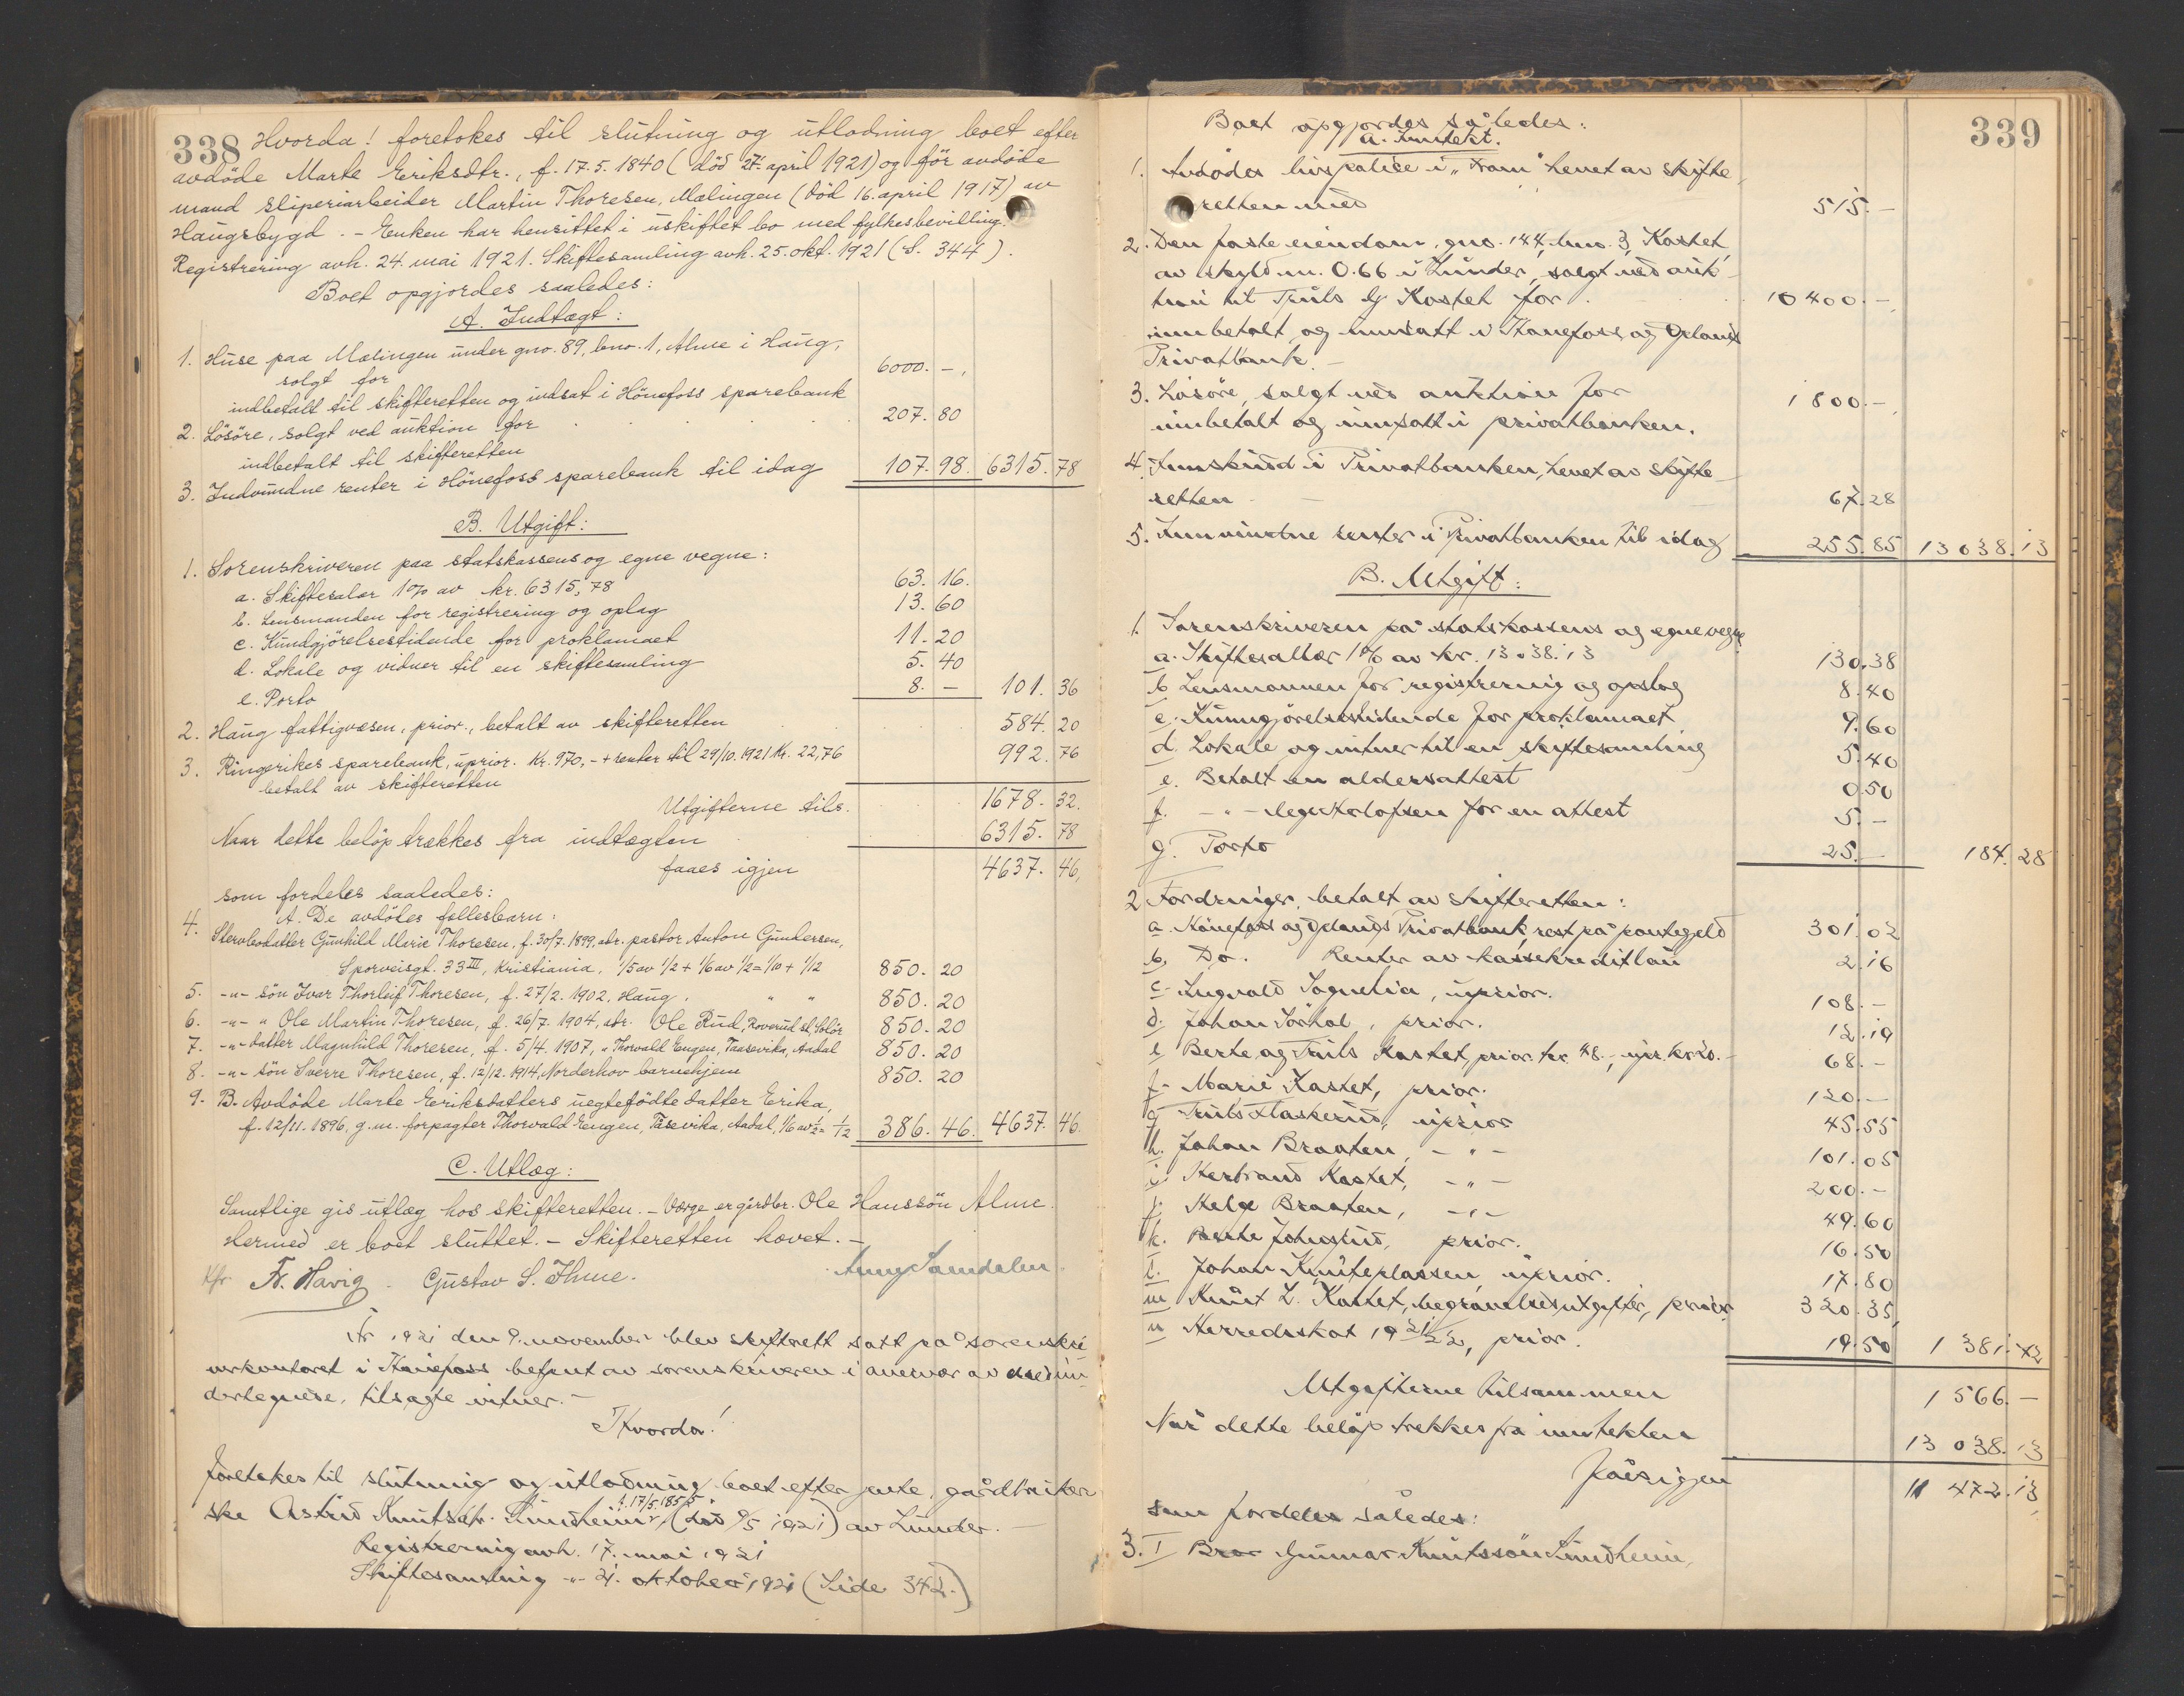 338
Hvorda! foretokes til slutning og utlodning boet efter
avdöde Marte Eriksdtr., f. 17.5.1840 (död 27. april 1921) og för avdöde
mand sliperiarbeider Martin Thoresen, Mælingen (död 16. april 1917) av
Haugsbygd. - Enken har hensittet i uskiftet bo med fylkesbevilling.
Registrering avh. 24. mai 1921. Skiftesamling avh. 25. okt. 1921 (S. 344).
Boet opgjordes saaledes:
A. Indtægt:
1. Huse paa Mælingen under gno. 89, bno. 1, Alme i Haug,
solgt for 6000. -,
indbetalt til skifteretten og indsat i Hönefoss sparebank
2. Lösöre, solgt ved auktion for 207. 80
indbetalt til skifteretten
3. Indvundne renter i Hönefoss sparebank til idag 107. 98. 6315. 78
B. Utgift:
1. Sorenskriveren paa statskassens og egne vegne:
a. Skiftesalær 1% av kr. 6315,78 63. 16.
b. Lensmanden for registrering og oplag 13. 60
c. Kundgjörelsestidende for proklamaet 11. 20
d. Lokale og vidner til en skiftesamling 5. 40
e. Porto 8. - 101. 36
2. Haug fattigvæsen, prior., betalt av skifteretten 584. 20
3. Ringerikes sparebank, uprior. Kr. 970,- + renter til 29/10. 1921 Kr. 22,76 992. 76
betalt av skifteretten
Utgifterne tils. 1678. 32.
Naar dette belöp trækkes fra indtægten 6315. 78
faaes igjen 4637. 46,
som fordeles saaledes:
A. De avdödes fællesbarn:
4. Stervbodatter Gunhild Marie Thoresen, f. 30/7. 1899, adr. pastor Anton Gundersen,
Sporveisgt. 33 III, Kristiania. 1/5 av 1/2 + 1/6 av 1/2 = 1/10 + 1/12 850. 20
5. -"- sön Ivar Thorleif Thoresen, f. 27/2. 1902, Haug. " " 850. 20
6. -"- " Ole Martin Thoresen, f. 26/7. 1904, adr. Ole Rud, Roverud st. Solör 850. 20
7. -"- datter Magnhild Thoresen, f. 5/4. 1907, " Thorvald Engen, Taasevika, Aadal 850. 20
8. -"- sön Sverre Thoresen, f. 12/12. 1914, Norderhov barnehjem 850. 20
9. B. Avdöde Marte Eriksdatters uegtefödte datter Erika,
f. 12/11. 1896, g.m. forpagter Thorvald Engen, Tasevika, Aadal, 1/6 av 1/2 = 1/12 386. 46. 4637. 46.
C. Utlæg:
Samtlige gis utlæg hos skifteretten. - Verge er gårdbr. Ole Hanssön Alme.
Hermed er boet sluttet. - Skifteretten hævet. -
Fr. Havig. Gustav S. Ihme.
År 1921 den 9. november blev skifterett satt på sorenskri-
verkontoret i Hönefoss betjent av sorenskriveren i överver av de un-
dertegnede, tilsagte vitner. -
Hvorda!
foretokes til slutning og utlodning boet efter gårdbruker-
ske Astrid Knutsdtr. Lindheim, f. 17/5.1855, (död 9/5 1921) av Lunder. -
Registrering avh. 17. mai 1921
Skiftesamling -"- 21. oktober 1921 (Side 342.)
339
Boet opgjordes således:
A. Inntekt.
1. Avdödes livspolise i "Fram" hevet av skifte-
retten med 515. -
2. Den faste eiendom, gno. 144, bno. 3, Kastet,
av skyld m. 0.66 i Lunder, solgt ved auk-
tion til Truls G. Kastet for 10400. -,
innbetalt og innsatt i Hönefoss og Oplands
Privatbank. -
3. Lösöre, solgt ved auktion for 1800. -,
innbetalt og innsatt i privatbanken.
4. Innskudd i Privatbanken, hevet av skifte-
retten 67. 28
5. Innvundne renter i Privatbanken til idag 255. 85 13038. 13
B. Utgift:
1. Sorenskriveren på statskassens og egne vegne
a. Skiftesallær 1% av kr. 13038.13 130. 38
b. Lensmannen for registrering og opslag 8. 40
c. Kunngjörelsestidende for proklamaet 9. 60
d. Lokale og vitner til en skiftesamling 5. 40
e. Betalt en aldersattest 0. 50
f. -"- for en attest 5. -
g. Porto 25. - 184. 28
2. Fordringer, betalt av skifteretten:
a. Hönefoss og Oplands Privatbank, rest på pantegjeld 301. 02
b. Do. Renter av kassekreditlån 2. 16
c. Ingvald Sognelia, uprior. 108. -
d. Johan Sörhol, prior. 12. 19
e. Berte og Truls Kastet, prior. kr. 48.-, upr. kr. 20.- 68. -
f. Marie Kastet, prior. 120. -
g. Truls Flaskerud, uprior 45. 55
h. Johan Braaten, -"- 101. 05
i. Herbrand Kastet, -"- 200. -
j. Helge Braaten, -"- 49. 60
k. Berte, prior. 16. 50
l. Johan Knuteplassen, uprior. 17. 80
m. Knut L. Kastet, begravelsesutgifter, prior 320. 35,
n. Herredsskat 1921/22, prior. 19. 50 1381. 72
Utgifterne tilsammen 1566. -
Når dette belöp trekkes fra inntekten 13038. 13
fåes igjen 11472. 13
som fordeles således:
3. I Bror Gunnar Knutssön Lindheim,